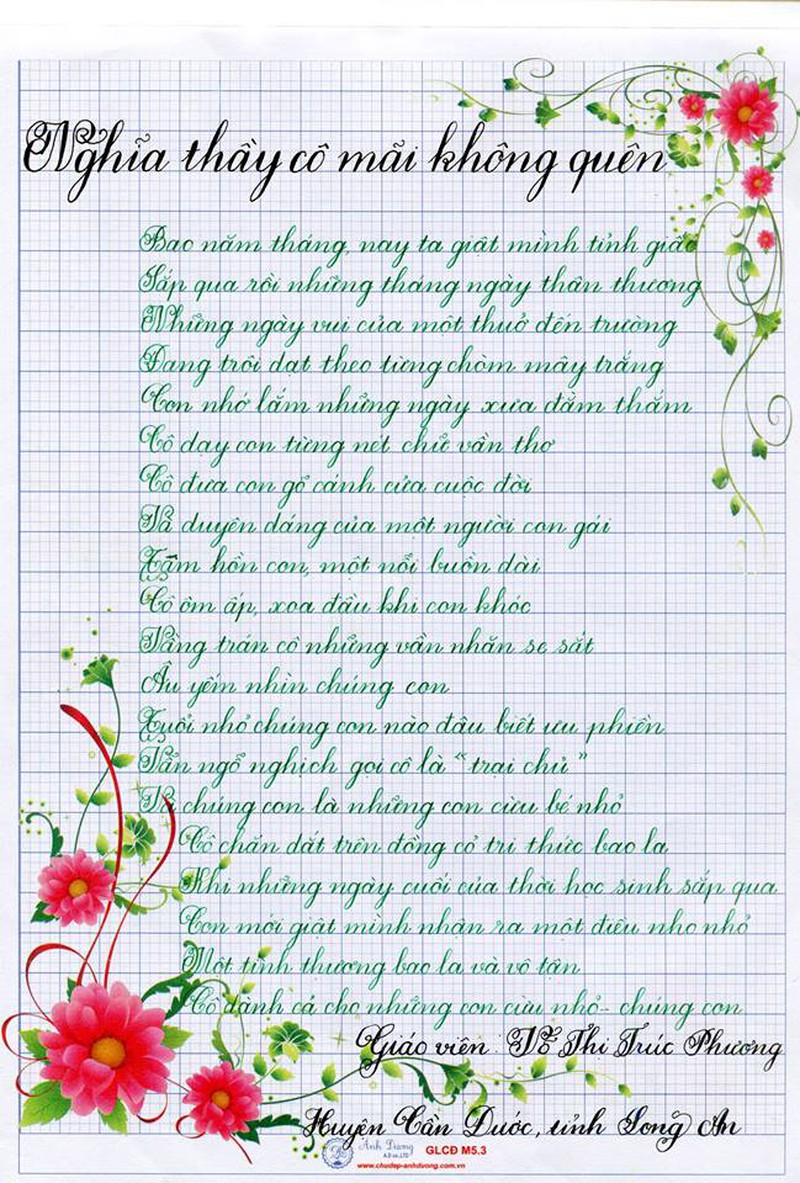 Nghĩa thầy cô mãi không quên
Bao năm tháng, nay ta giật mình tỉnh giấc
Sắp qua rồi những tháng ngày thân thương
Những ngày vui của một thuở đến trường
Đang trôi dạt theo từng chòm mây trắng
Con nhớ lắm những ngày xưa đằm thắm
Cô dạy con từng nét chữ vần thơ
Cô đưa con gõ cánh cửa cuộc đời
Và duyên dáng của một người con gái
Tâm hồn con, một nỗi buồn dài
Cô ôm ấp, xoa đầu khi con khóc
Vầng trán cô những vần nhăn se sắt
Âu yếm nhìn chúng con
Tuổi nhỏ chúng con nào đâu biết ưu phiền
Vẫn ngỗ nghịch gọi cô là “trại chủ”
Vì chúng con là những con cừu bé nhỏ
Cô chăn dắt trên đồng cỏ tri thức bao la
Khi những ngày cuối của thời học sinh sắp qua
Con mới giật mình nhận ra một điều nho nhỏ
Một tình thương bao la và vô tận
Cô dành cả cho những con cừu nhỏ- chúng con
Giáo viên: Võ Thi Trúc Phương
Huyện Cần Đước, tỉnh Long An
Ánh Dương GLCĐ M5.3
A.D co.,LTD
www.chudep-anhduong.com.vn